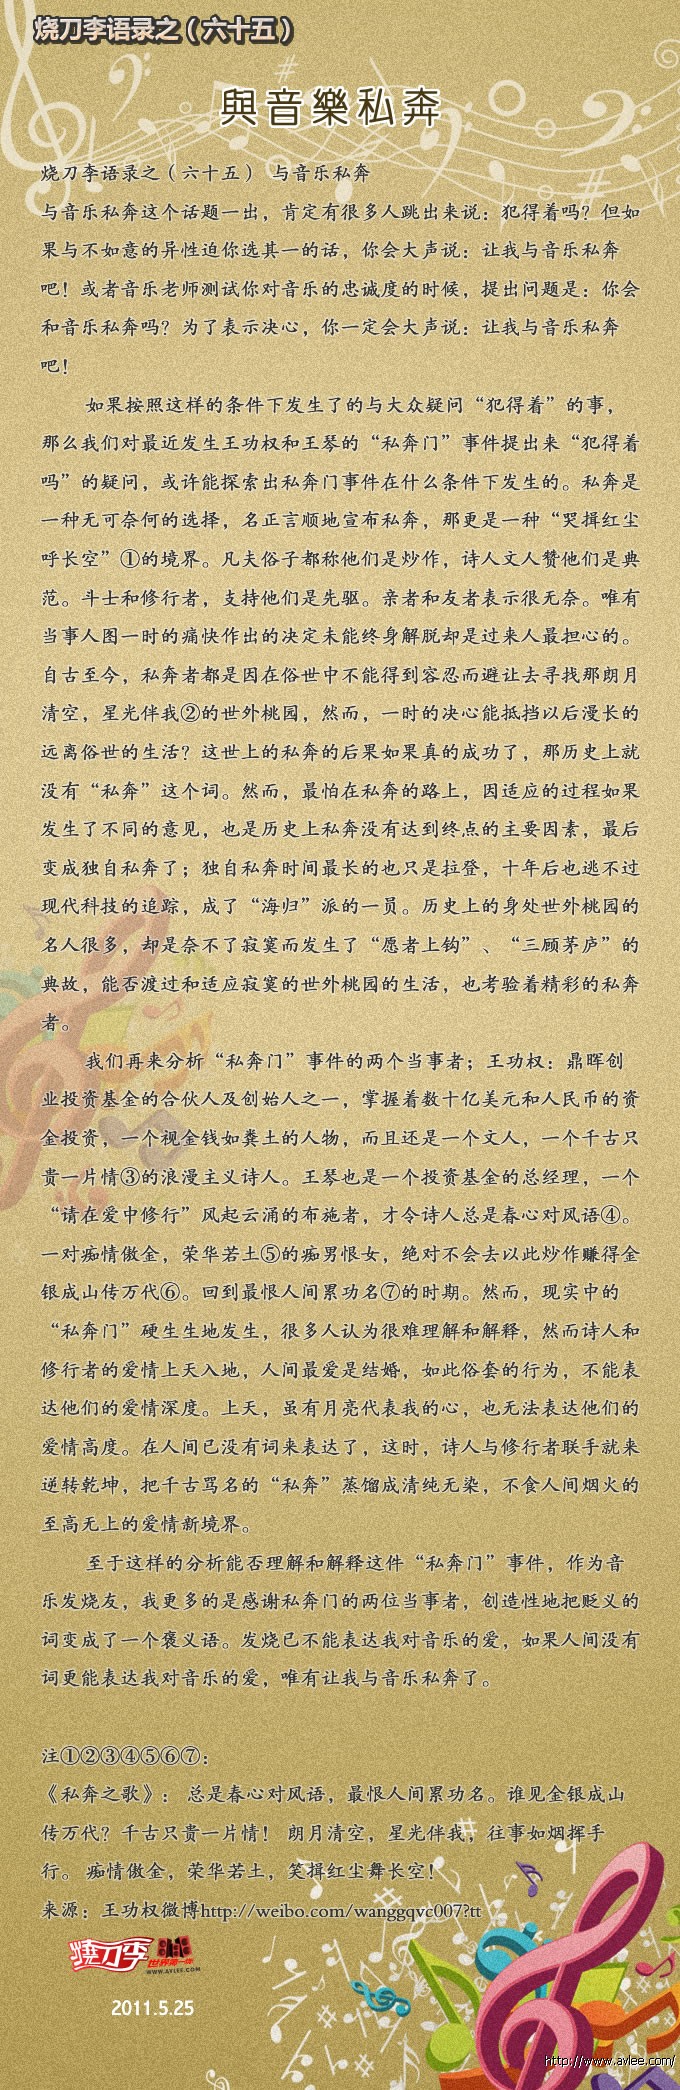 烧刀李语录之（六十五）
與音樂私奔
烧刀李语录之（六十五） 与音乐私奔
与音乐私奔这个话题一出，肯定有很多人跳出来说：犯得着吗？但如
果与不如意的异性迫你选其一的话，你会大声说：让我与音乐私奔
吧！或者音乐老师测试你对音乐的忠诚度的时候，提出问题是：你会
和音乐私奔吗？为了表示决心，你一定会大声说：让我与音乐私奔
吧！
如果按照这样的条件下发生了的与大众疑问“犯得着”的事，
那么我们对最近发生王功权和王琴的“私奔门”事件提出来“犯得着
吗”的疑问，或许能探索出私奔门事件在什么条件下发生的。私奔是
一种无可奈何的选择，名正言顺地宣布私奔，那更是一种“哭揖红尘
呼长空”①的境界。凡夫俗子都称他们是炒作，诗人文人赞他们是典
范。斗士和修行者，支持他们是先驱。亲者和友者表示很无奈。唯有
当事人图一时的痛快作出的决定未能终身解脱却是过来人最担心的。
自古至今，私奔者都是因在俗世中不能得到容忍而避让去寻找那朗月
清空，星光伴我②的世外桃园，然而，一时的决心能抵挡以后漫长的
远离俗世的生活？这世上的私奔的后果如果真的成功了，那历史上就
没有“私奔”这个词。然而，最怕在私奔的路上，因适应的过程如果
发生了不同的意见，也是历史上私奔没有达到终点的主要因素，最后
变成独自私奔了；独自私奔时间最长的也只是拉登，十年后也逃不过
现代科技的追踪，成了“海归”派的一员。历史上的身处世外桃园的
名人很多，却是奈不了寂寞而发生了“愿者上钩”、“三顾茅庐”的
典故，能否渡过和适应寂寞的世外桃园的生活，也考验着精彩的私奔
者。
我们再来分析“私奔门”事件的两个当事者；王功权：鼎晖创
业投资基金的合伙人及创始人之一，掌握着数十亿美元和人民币的资
金投资，一个视金钱如粪土的人物，而且还是一个文人，一个千古只
贵一片情③的浪漫主义诗人。王琴也是一个投资基金的总经理，一个
“请在爱中修行”风起云涌的布施者，才令诗人总是春心对风语④。
一对痴情傲金，荣华若土⑤的痴男恨女，绝对不会去以此炒作赚得金
银成山传万代⑥。回到最恨人间累功名⑦的时期。然而，现实中的
“私奔门”硬生生地发生，很多人认为很难理解和解释，然而诗人和
修行者的爱情上天入地，人间最爱是结婚，如此俗套的行为，不能表
达他们的爱情深度。上天，虽有月亮代表我的心，也无法表达他们的
爱情高度。在人间已没有词来表达了，这时，诗人与修行者联手就来
逆转乾坤，把千古骂名的“私奔”蒸馏成清纯无染，不食人间烟火的
至高无上的爱情新境界。
至于这样的分析能否理解和解释这件“私奔门”事件，作为音
乐发烧友，我更多的是感谢私奔门的两位当事者，创造性地把贬义的
词变成了一个褒义语。发烧已不能表达我对音乐的爱，如果人间没有
词更能表达我对音乐的爱，唯有让我与音乐私奔了。
注①②③④⑤⑥⑦：
《私奔之歌》： 总是春心对风语，最恨人间累功名。谁见金银成山
传万代？千古只贵一片情！ 朗月清空，星光伴我，往事如烟挥手
行。 痴情傲金，荣华若土，笑揖红尘舞长空！
来源：王功权微博http://weibo.com/wanggqvc007?tt
烧刀李
WWW.AVLEE.COM
2011.5.25
http://www.avlee.com/